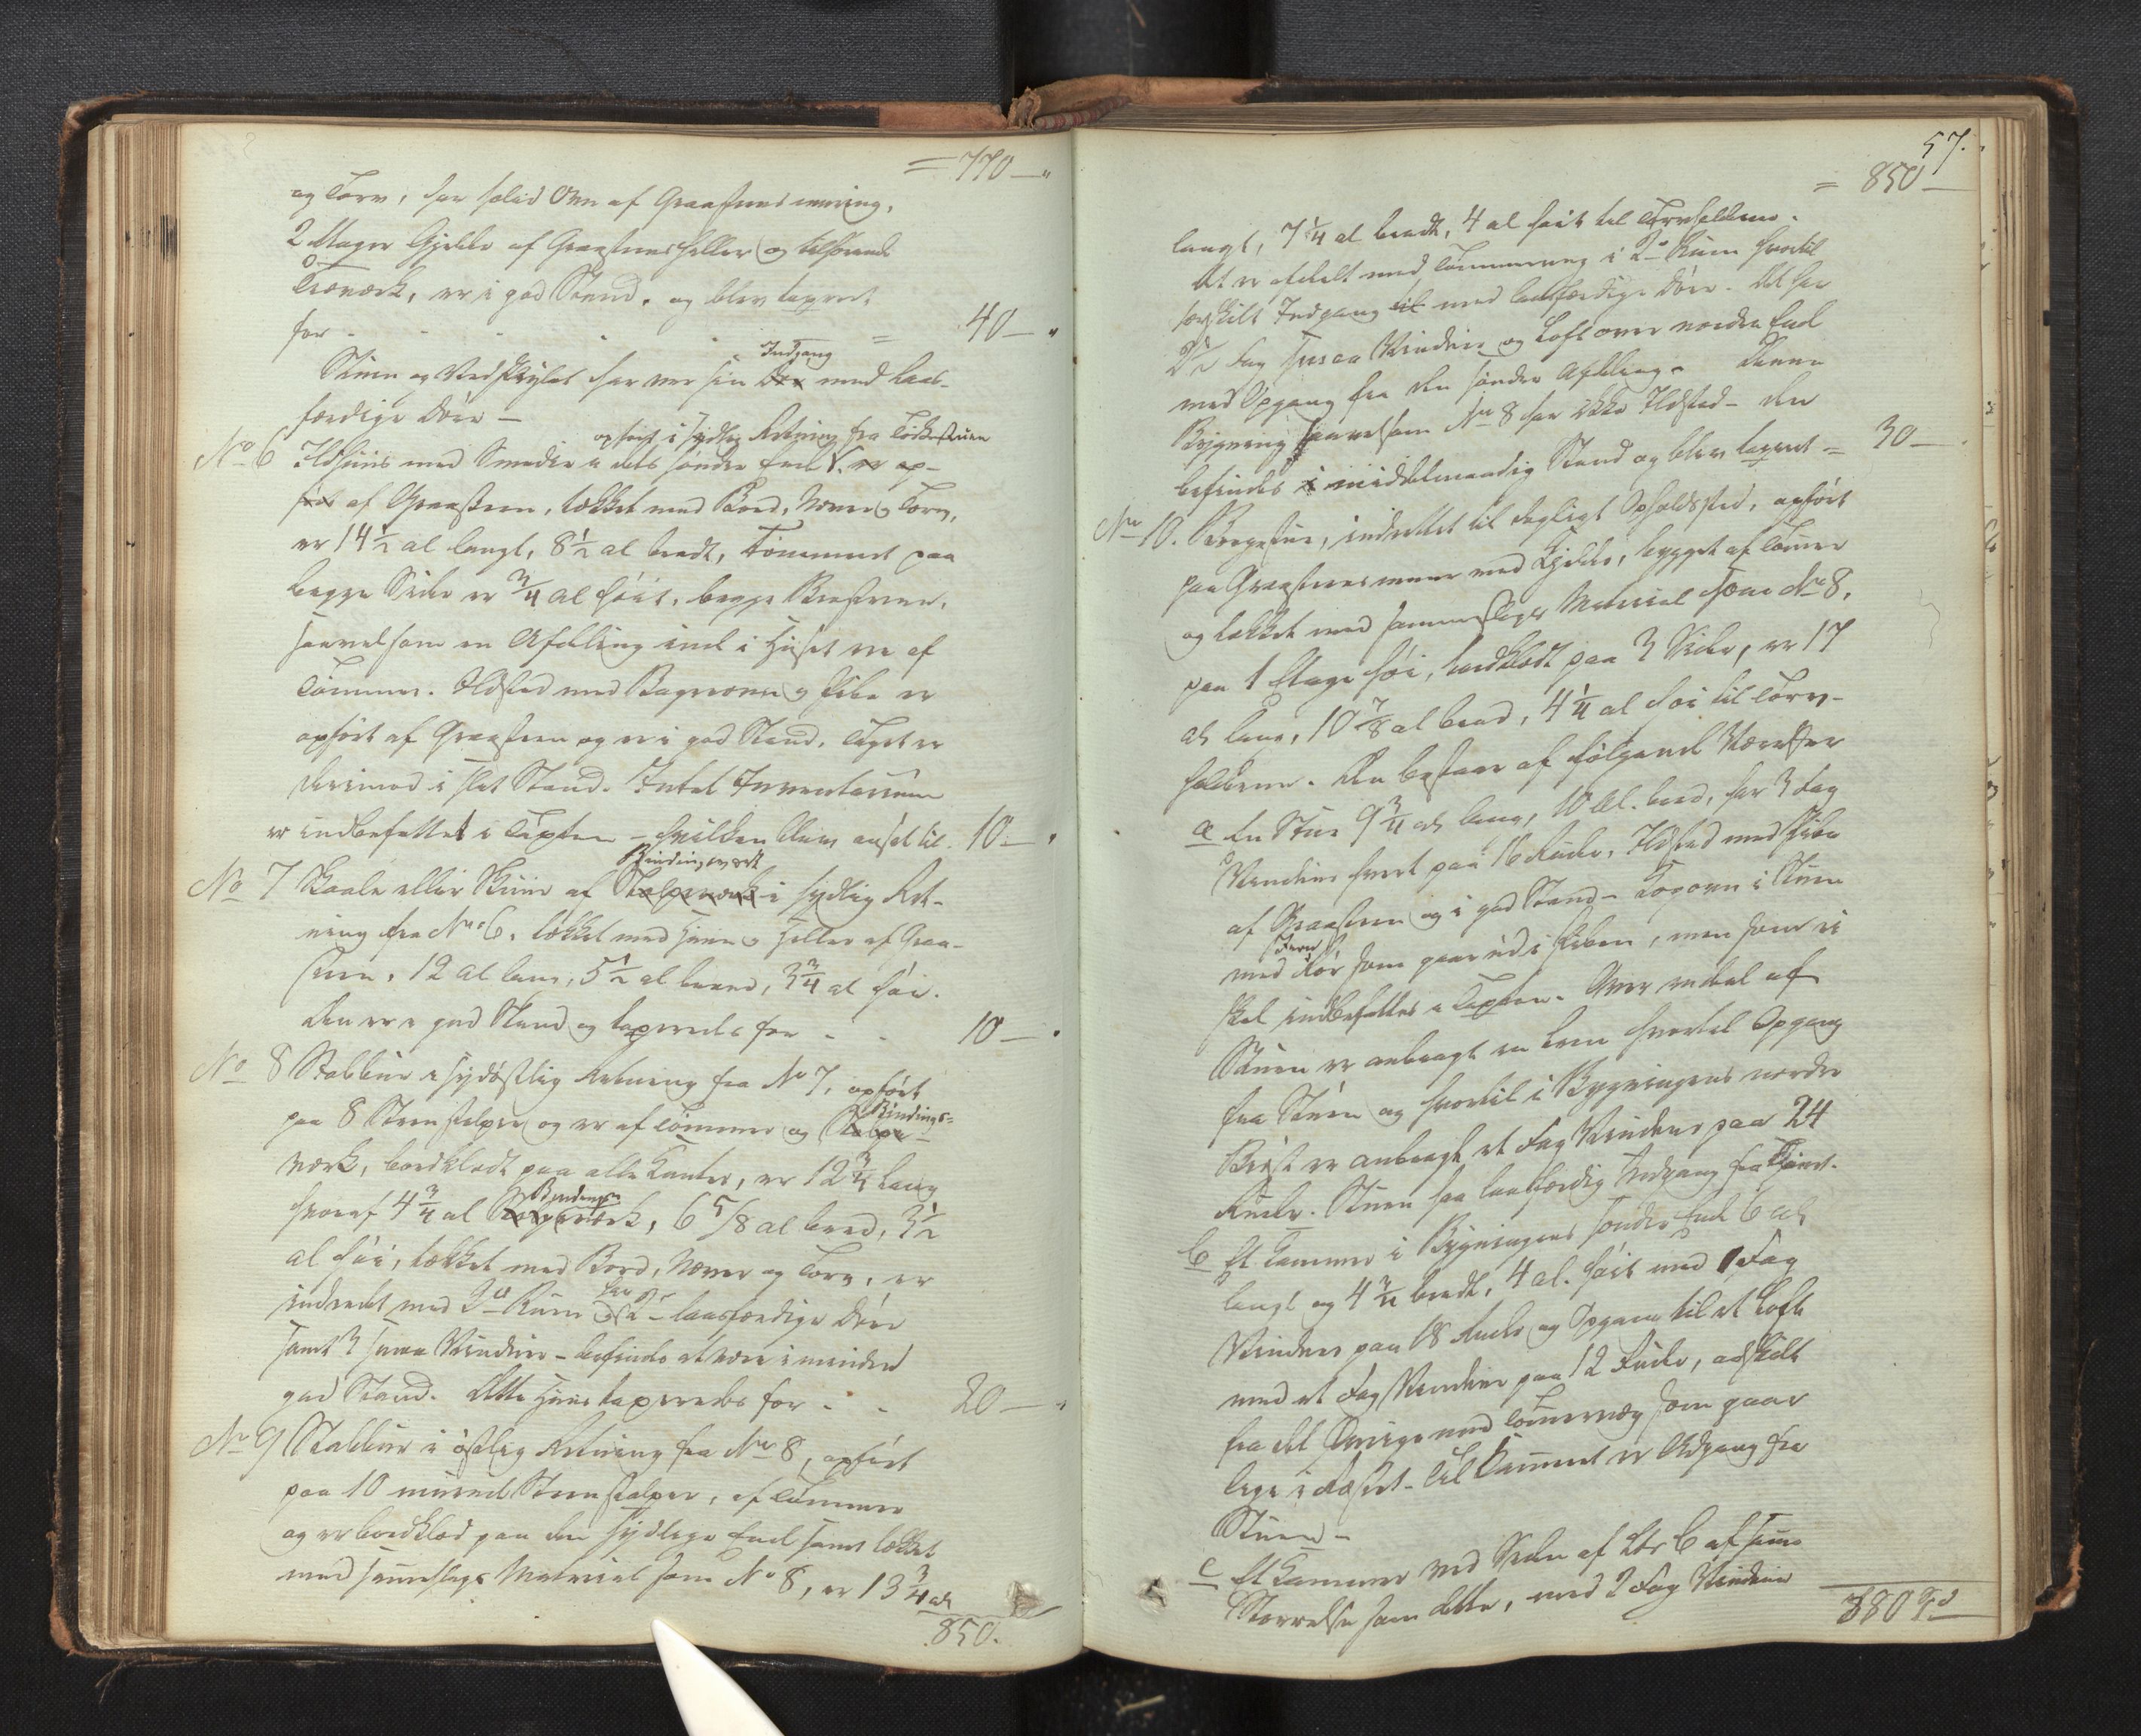 = 770 — "
og Torv, har solid Ovn af Graasteensmuring,
2 Etager Hjelde af Graasteensheller og tilhørende
Træværk, er i god Stand, og blev taxeret
for - - - - - = 40 — "
Stuen og Vedskjulet har hver sin Dør Indgang med laas-
færdige Døre —
No 6 Ildhuus med Smedie i dets søndre Ende opført i sydlig Retning fra Tørkestuen er op-
ført af Graasteen, tækket med Bord, Næver og Torv,
er 14 1/2 al langt, 8 1/2 al bredt, Tømmeret paa
begge Sider er 3/4 al høit, begge Brøstene,
saavelsom en Afdeling ind i Huset ere af
Tømmer. Ildsted med Bagerovn og Pibe er
opført af Graasteen og er i god Stand. Taget er
derimod i slet Stand. Intet Inventarium
er indbefattet i Taxten — hvilken blev ansat til 10 — "
No 7 Skaale eller Skuur af Stolpeværk Bindingsverk i sydlig Ret-
ning fra No 6, tækket med Heller af Graa-
steen, 12 al lang, 5 1/2 al breed, 3 3/4 al høi.
Den er i god Stand og taxeredes for - - 10 — "
No 8 Stabbur i sydøstlig Retning fra No 7, opført
paa 8 Steenstolper og er af Tømmer og Stolpe- Bindings-
værk, bordklædt paa alle Kanter, er 12 3/4 lang
hvoraf 4 3/4 al Stolpe Bindingsværk, 6 5/8 al bred, 3 1/2
al høi, tækket med Bord, Næver og Torv, er
indredet med 2de Rum og har 2de laasfærdige Døre
samt 3 smaa Vinduer — befindes at være i mindre
god Stand. Dette Huus taxeredes for - - 20 — "
No 9 Stabbur i østlig Retning fra No 8, opført
paa 10 murede Steenstolper, af Tømmer
og er bordklæd paa den sydlige Ende samt tækket
med samme slags Material som No 8, er 13 3/4 al
850.
57.
= 850 —
langt, 7 1/4 al bredt, 4 al høit til Torvholdene.
Det er afdelt med Tømmervæg i 2de Rum hvortil
særskilt Indgang til med laasfærdige Døre. Det har
2de Fag smaa Vinduer og Loft over nordre Ende
med Opgang fra den søndre Afdeling. Denne
Bygning saavelsom No 8 har ikke Ildsted — den
befindes i middelmaadig Stand og blev taxeret = 30 —
No 10. Borgestue, indrettet til dagligt Opholdssted, opført
paa Graasteensmuur med Kjelder, bygget af Tømmer
og tækket med samme slags Material som No 8,
paa 1 Etage høi, bordklædt paa 3 Sider, er 17
al lang, 10 7/8 al bred, 4 1/4 al høi til Torv-
holdene. Den bestaar af følgende Værelser
a En Stue 9 3/4 al lang, 10 al. bred, har 3 Fag
Vinduer hvert paa 16 Ruder, Ildsted med Pibe
af Graasteen og i god Stand — Kogovn i Stuen
med Jern Rør som gaar ud i Piben, men som ei
skal indbefattes i Taxten. Over en del af
Stuen er anbragt en Lem hvortil Opgang
fra Stuen og hvortil i Bygningens nordre
Brøst er anbragt et Fag Vinduer paa 24
Ruder. Stuen har laasfærdig Indgang fra Tunet.
b Et Kammer i Bygningens søndre Ende 6 al
langt og 4 3/4 bredt, 4 al. høit med 1 Fag
Vinduer paa 18 Ruder og Opgang til et Loft
med et Fag Vinduer paa 12 Ruder, adskilt
fra det Øvrige med Tømmervæg som gaar
lige i Røstet. Til Kammeret er Adgang fra
Stuen —
c Et Kammer ved Siden af Litr b af samme
Størrelse som dette, med 2 Fag Vinduer
880 Spd